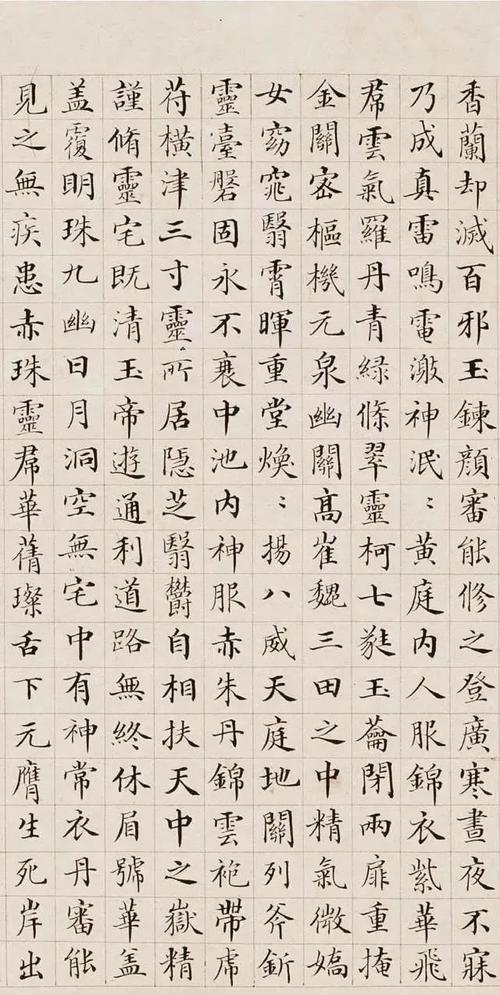 香蘭却滅百邪玉鍊顔審能修之登廣寒晝夜不寐
乃成真雷鳴電激神泯〻黄庭内人服錦衣紫華飛
帬雲氣羅丹青緑條翠靈柯七蕤玉蘥閉兩扉重掩
金關密樞機元泉幽關髙崔巍三田之中精氣微嬌
女窈窕翳霄暉重堂煥〻揚八威天庭地關列斧釿
靈臺磐固永不衰中池内神服赤朱丹錦雲袍帶虎
苻横津三寸靈所居隠芝翳欝自相扶天中之嶽精
謹脩靈宅既清玉帝遊通利道路無終休眉號華盖
盖覆明珠九幽日月洞空無宅中有神常衣丹審能
見之無疾患赤珠靈帬華蒨璨舌下元膺生死岸出